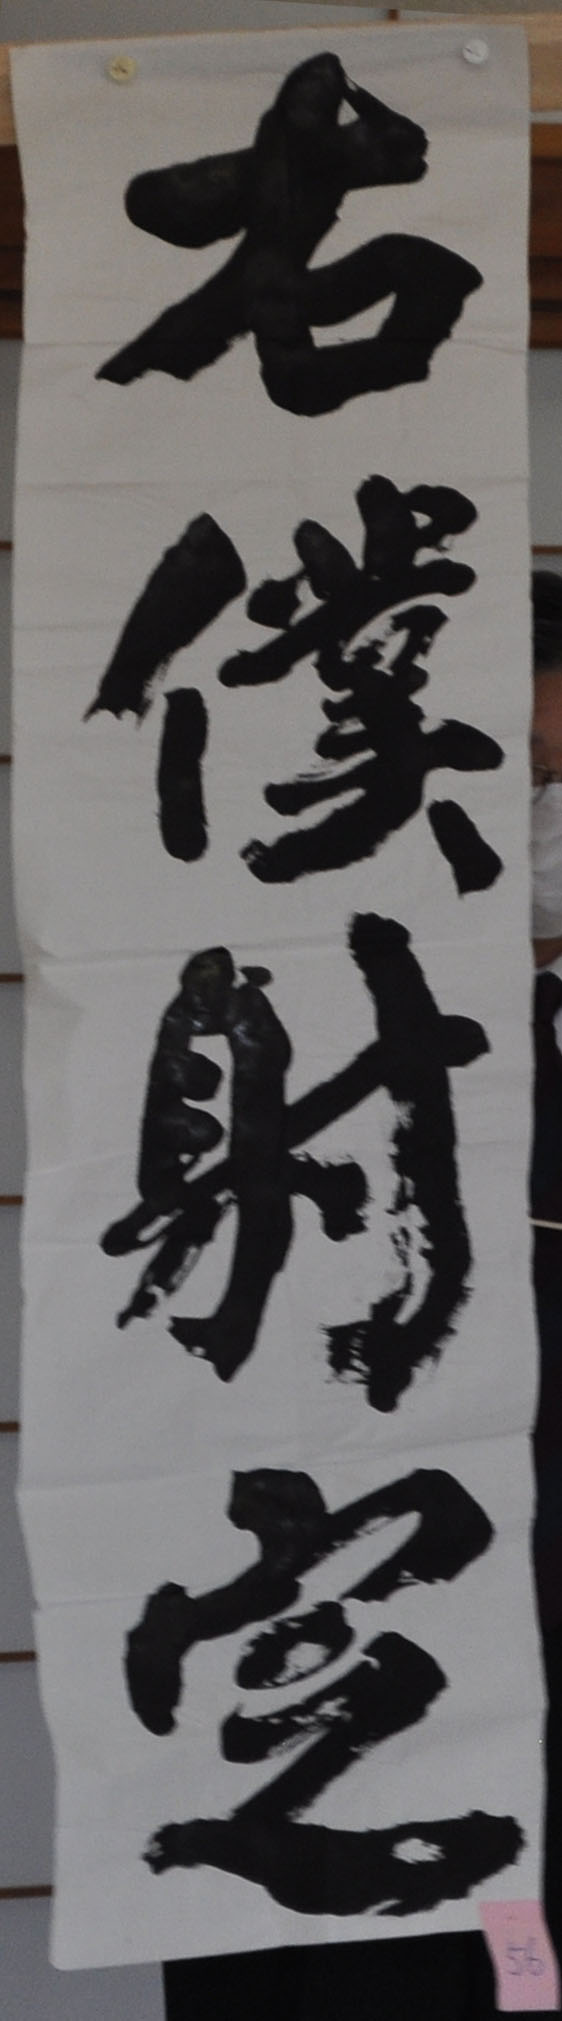 右僕射定
56